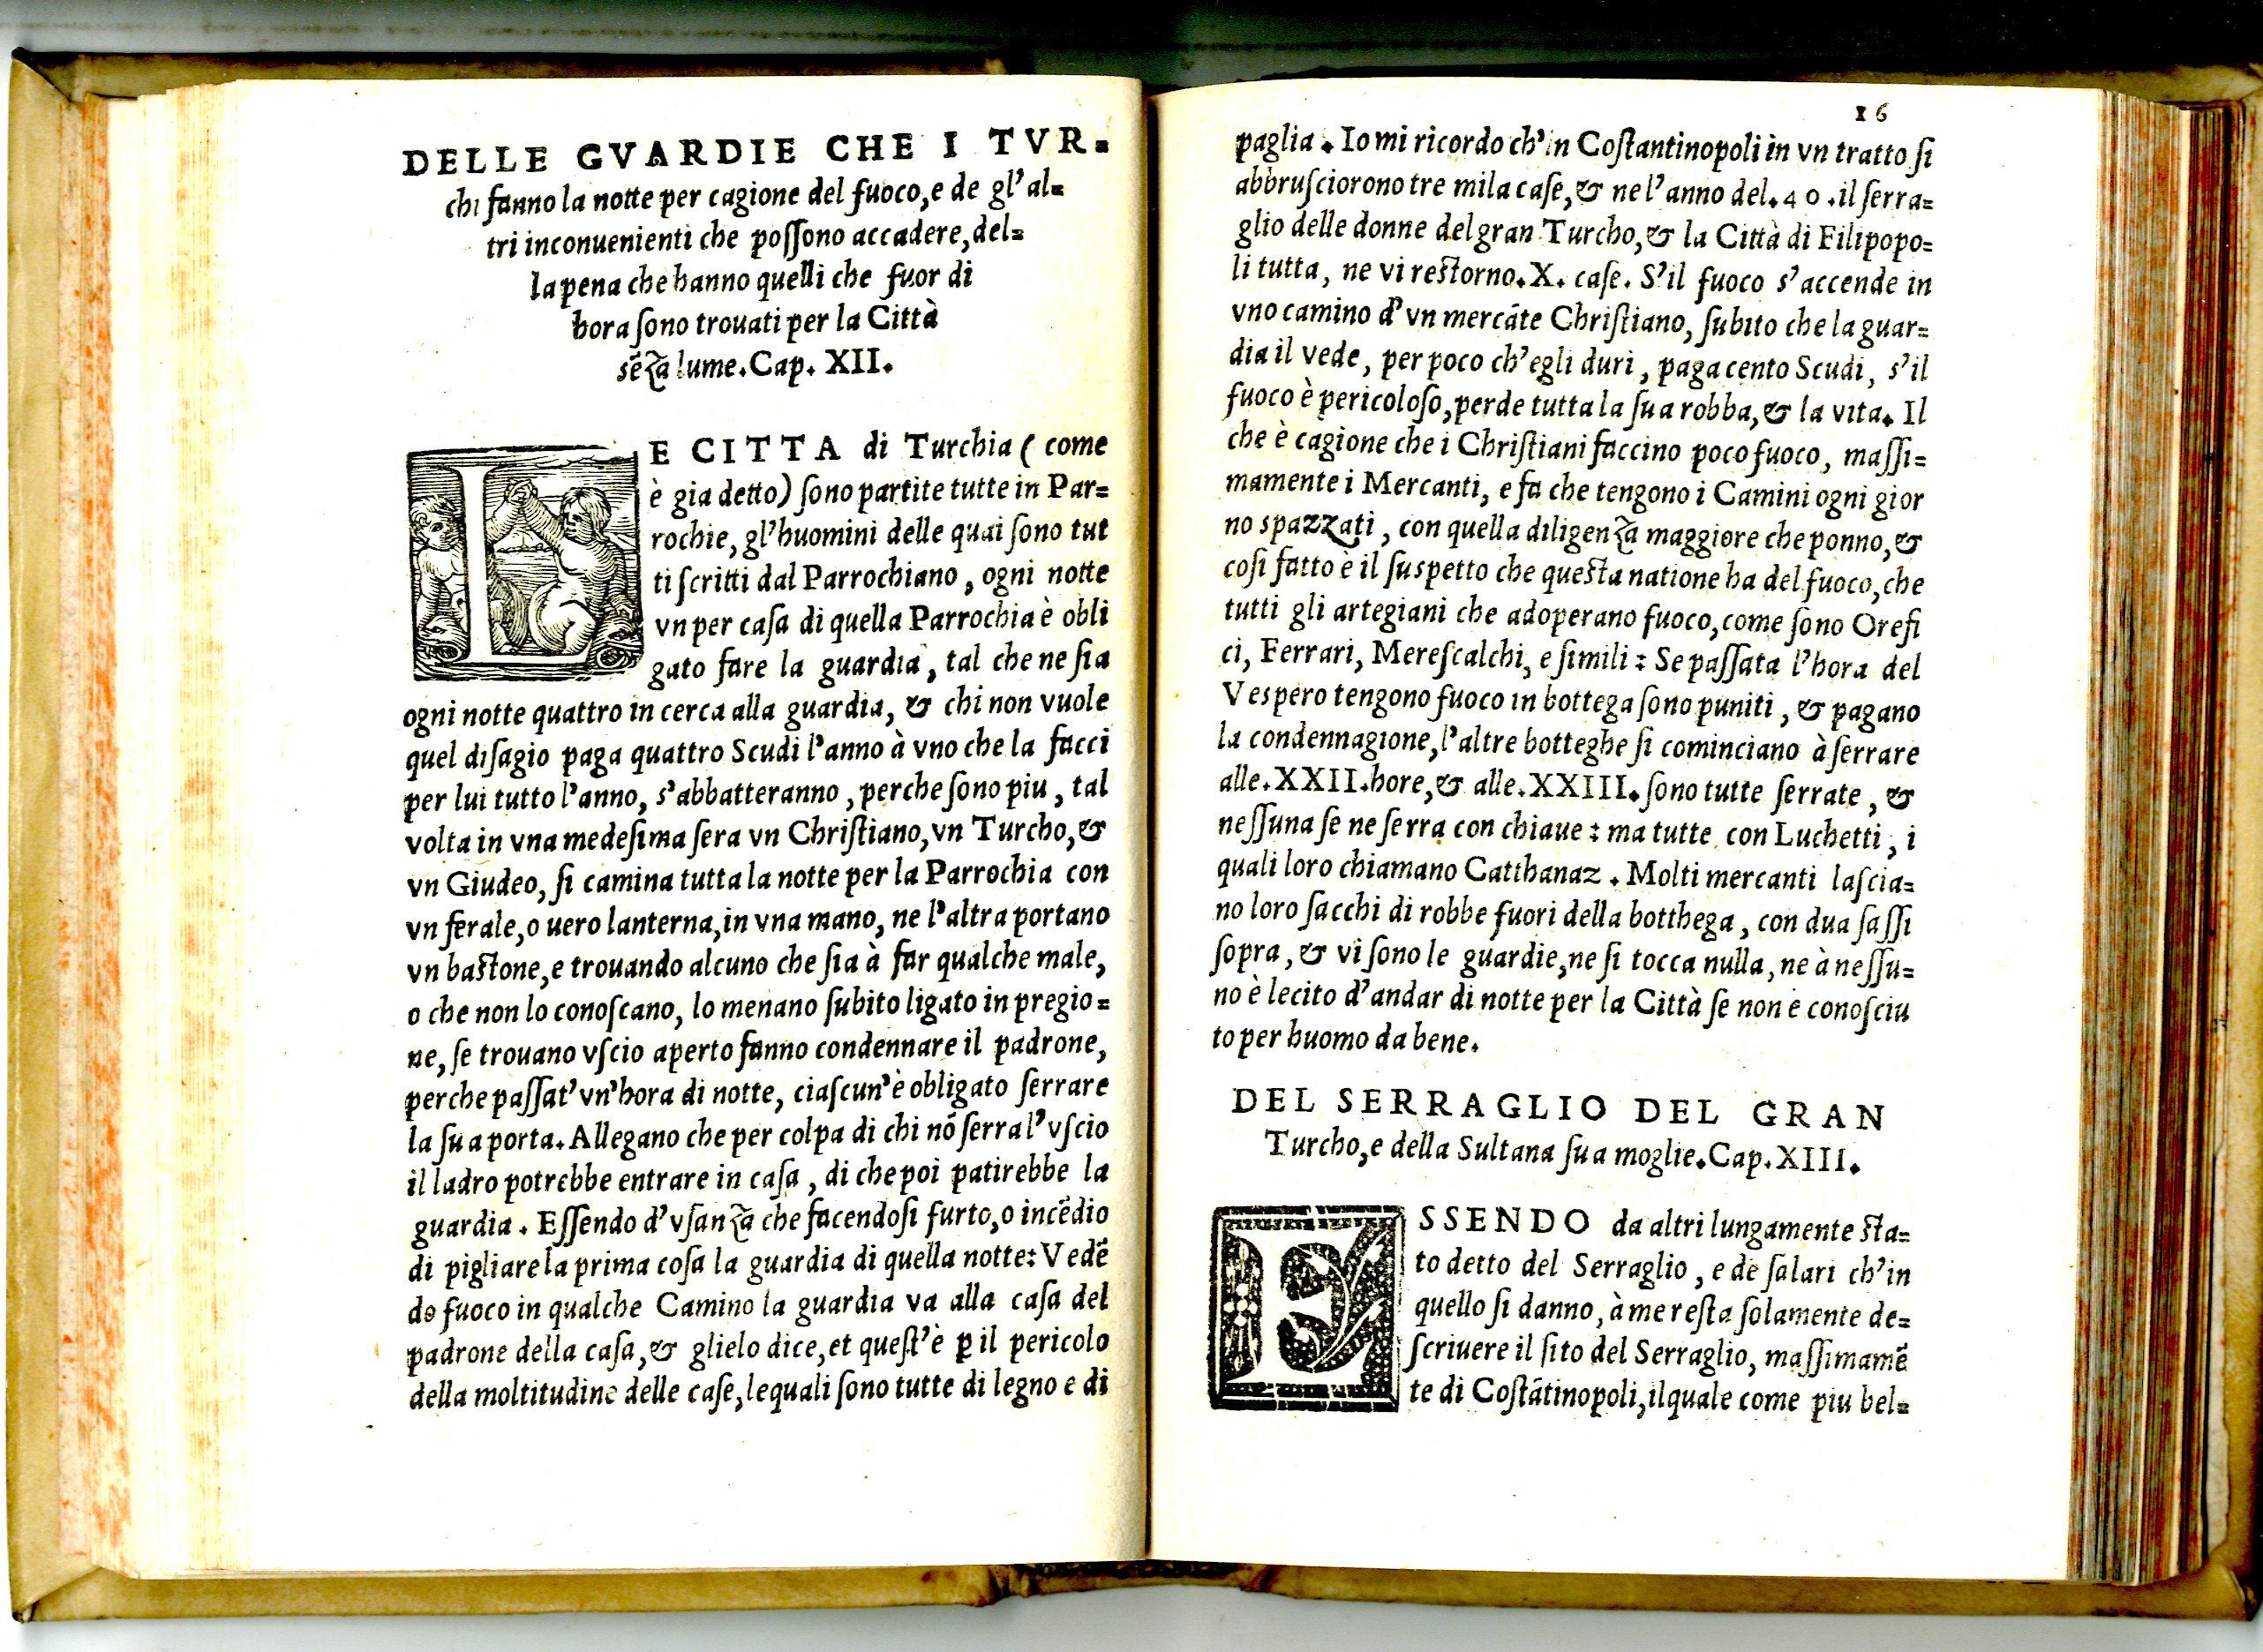 DELLE GVARDIE CHE I TVR=
chi fanno la notte per cagione del fuoco, e de gl'al=
tri inconuenienti che poſſono accadere, del=
la pena che hanno quelli che fuor di
hora ſono trouati per la Città
sēza lume. Cap. XII.
LE CITTA di Turchia ( come
è gia detto) ſono partite tutte in Par=
rochie, gl'huomini delle quai ſono tut
ti ſcritti dal Parrochiano, ogni notte
vn per caſa di quella Parrochia è obli
gato fare la guardia, tal che ne ſia
ogni notte quattro in cerca alla guardia, & chi non vuole
quel diſagio paga quattro Scudi l'anno à vno che la facci
per lui tutto l'anno, s'abbatteranno, perche ſono piu, tal
volta in vna medeſima ſera vn Chriſtiano, vn Turcho, &
vn Giudeo, ſi camina tutta la notte per la Parrochia con
vn ferale, o uero lanterna, in vna mano, ne l'altra portano
vn baſtone, e trouando alcuno che ſia à far qualche male,
o che non lo conoſcano, lo menano ſubito ligato in pregio=
ne, ſe trouano vſcio aperto fanno condennare il padrone,
perche paſſat'vn'hora di notte, ciaſcun'è obligato ſerrare
la ſua porta. Allegano che per colpa di chi nō ſerra l'vſcio
il ladro potrebbe entrare in caſa, di che poi patirebbe la
guardia. Eſſendo d'vſanza che facendoſi furto, o incēdio
di pigliare la prima coſa la guardia di quella notte: Vedē
do fuoco in qualche Camino la guardia va alla caſa del
padrone della caſa, & glielo dice, et queſt'è ꝑ il pericolo
della moltitudine delle caſe, lequali ſono tutte di legno e di
16
paglia. Io mi ricordo ch'in Coſtantinopoli in vn tratto ſi
abbruſciorono tre mila caſe, & ne l'anno del. 40. il ſerra=
glio delle donne del gran Turcho, & la Città di Filipopo=
li tutta, ne vi reſtorno. X. caſe. S'il fuoco s'accende in
vno camino d'vn mercāte Chriſtiano, ſubito che la guar=
dia il vede, per poco ch'egli duri, paga cento Scudi, s'il
fuoco è pericoloſo, perde tutta la ſua robba, & la vita. Il
che è cagione che i Chriſtiani faccino poco fuoco, maſſi=
mamente i Mercanti, e fa che tengono i Camini ogni gior
no spazzati, con quella diligenza maggiore che ponno, &
coſi fatto è il ſuspetto che queſta natione ha del fuoco, che
tutti gli artegiani che adoperano fuoco, come ſono Orefi
ci, Ferrari, Mereſcalchi, e ſimili: Se paſſata l'hora del
Vespero tengono fuoco in bottega ſono puniti, & pagano
la condennagione, l'altre botteghe ſi cominciano à ſerrare
alle. XXII. hore, & alle. XXIII. ſono tutte ſerrate, &
neſſuna ſe ne ſerra con chiaue: ma tutte con Luchetti, i
quali loro chiamano Catthanaz. Molti mercanti laſcia=
no loro ſacchi di robbe fuori della botthega, con dua ſaſſi
ſopra, & vi ſono le guardie, ne ſi tocca nulla, ne à neſſu=
no è lecito d'andar di notte per la Città ſe non è conoſciu
to per huomo da bene.
DEL SERRAGLIO DEL GRAN
Turcho, e della Sultana ſua moglie. Cap. XIII.
ESSENDO da altri lungamente ſta=
to detto del Serraglio, e de ſalari ch'in
quello ſi danno, à me reſta ſolamente de=
ſcriuere il ſito del Serraglio, maſſimamē
te di Coſtātinopoli, ilquale come piu bel=